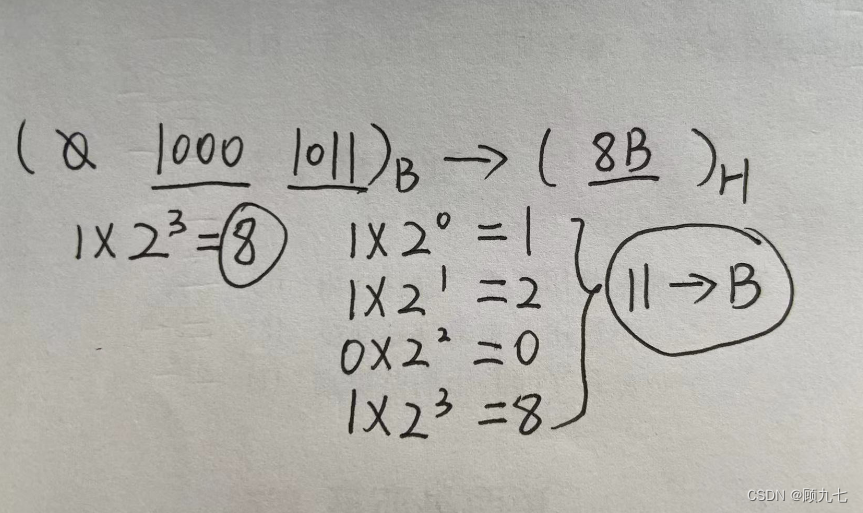 ( 1000 1011)B → ( 8B )H
1×2³=8 1×2⁰=1
1×2¹=2 11→B
0×2²=0
1×2³=8
CSDN @顾九七